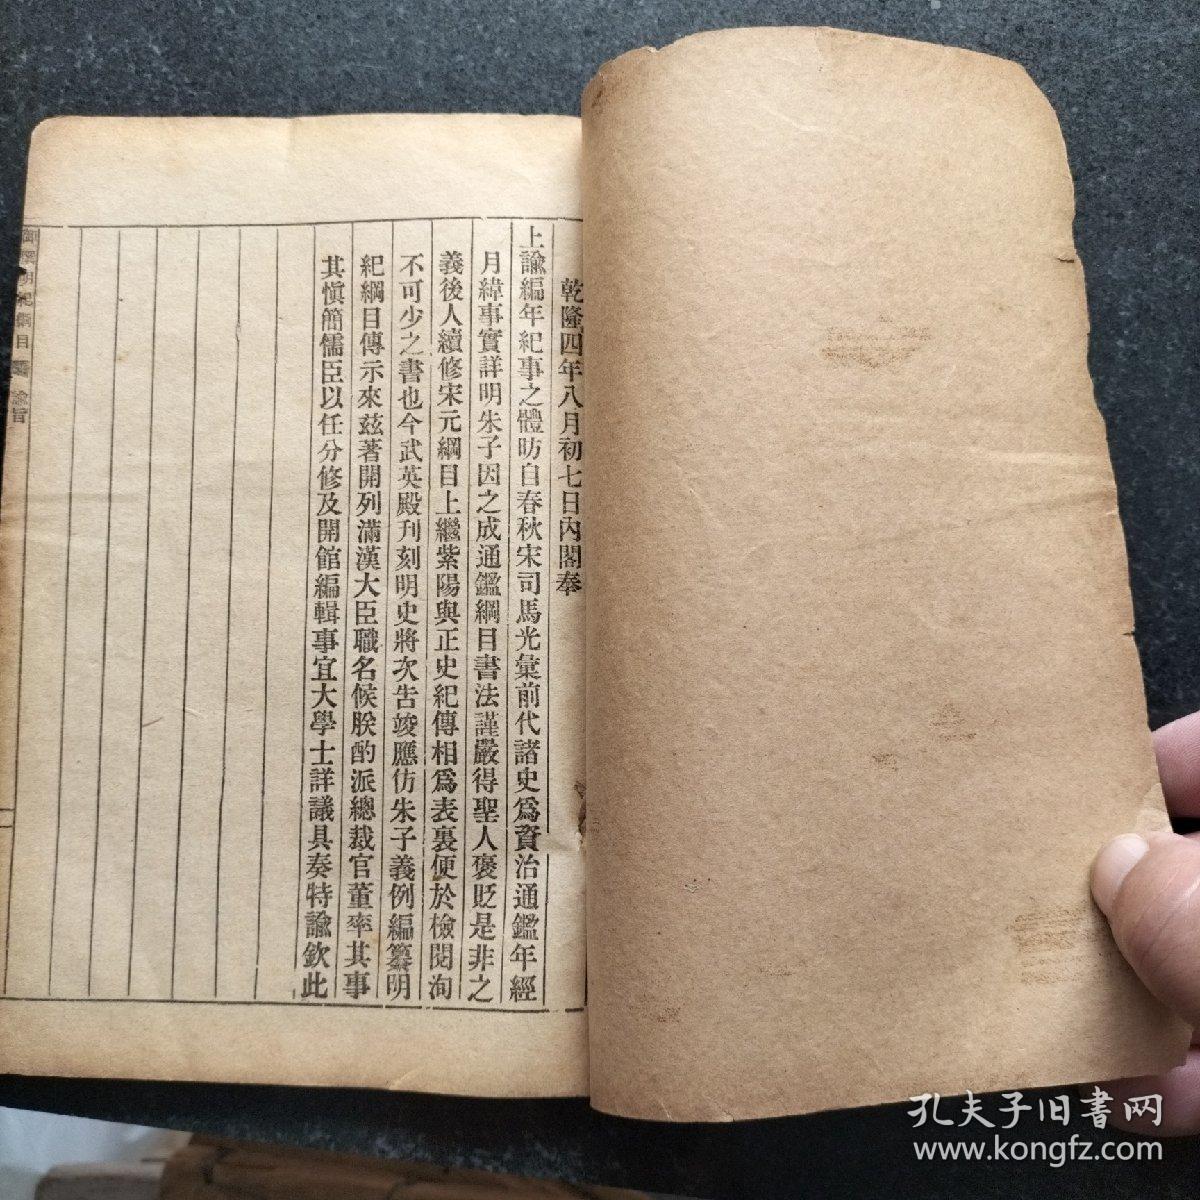 乾隆四年八月初七日內閣奉
上諭編年紀事之體昉自春秋宋司馬光彙前代諸史爲資治通鑑年經
月緯事實詳明朱子因之成通鑑綱目書法謹嚴得聖人褒貶是非之
義後人續修宋元綱目上繼紫陽與正史紀傳相爲表裏便於檢閱洵
不可少之書也今武英殿刋刻明史將次告竣應仿朱子義例編纂明
紀綱目傳示來茲著開列滿漢大臣職名候朕酌派總裁官董率其事
其愼簡儒臣以任分修及開館編輯事宜大學士詳議具奏特諭欽此
御撰明紀綱目 諭旨
一
孔夫子旧書网
www.kongfz.com